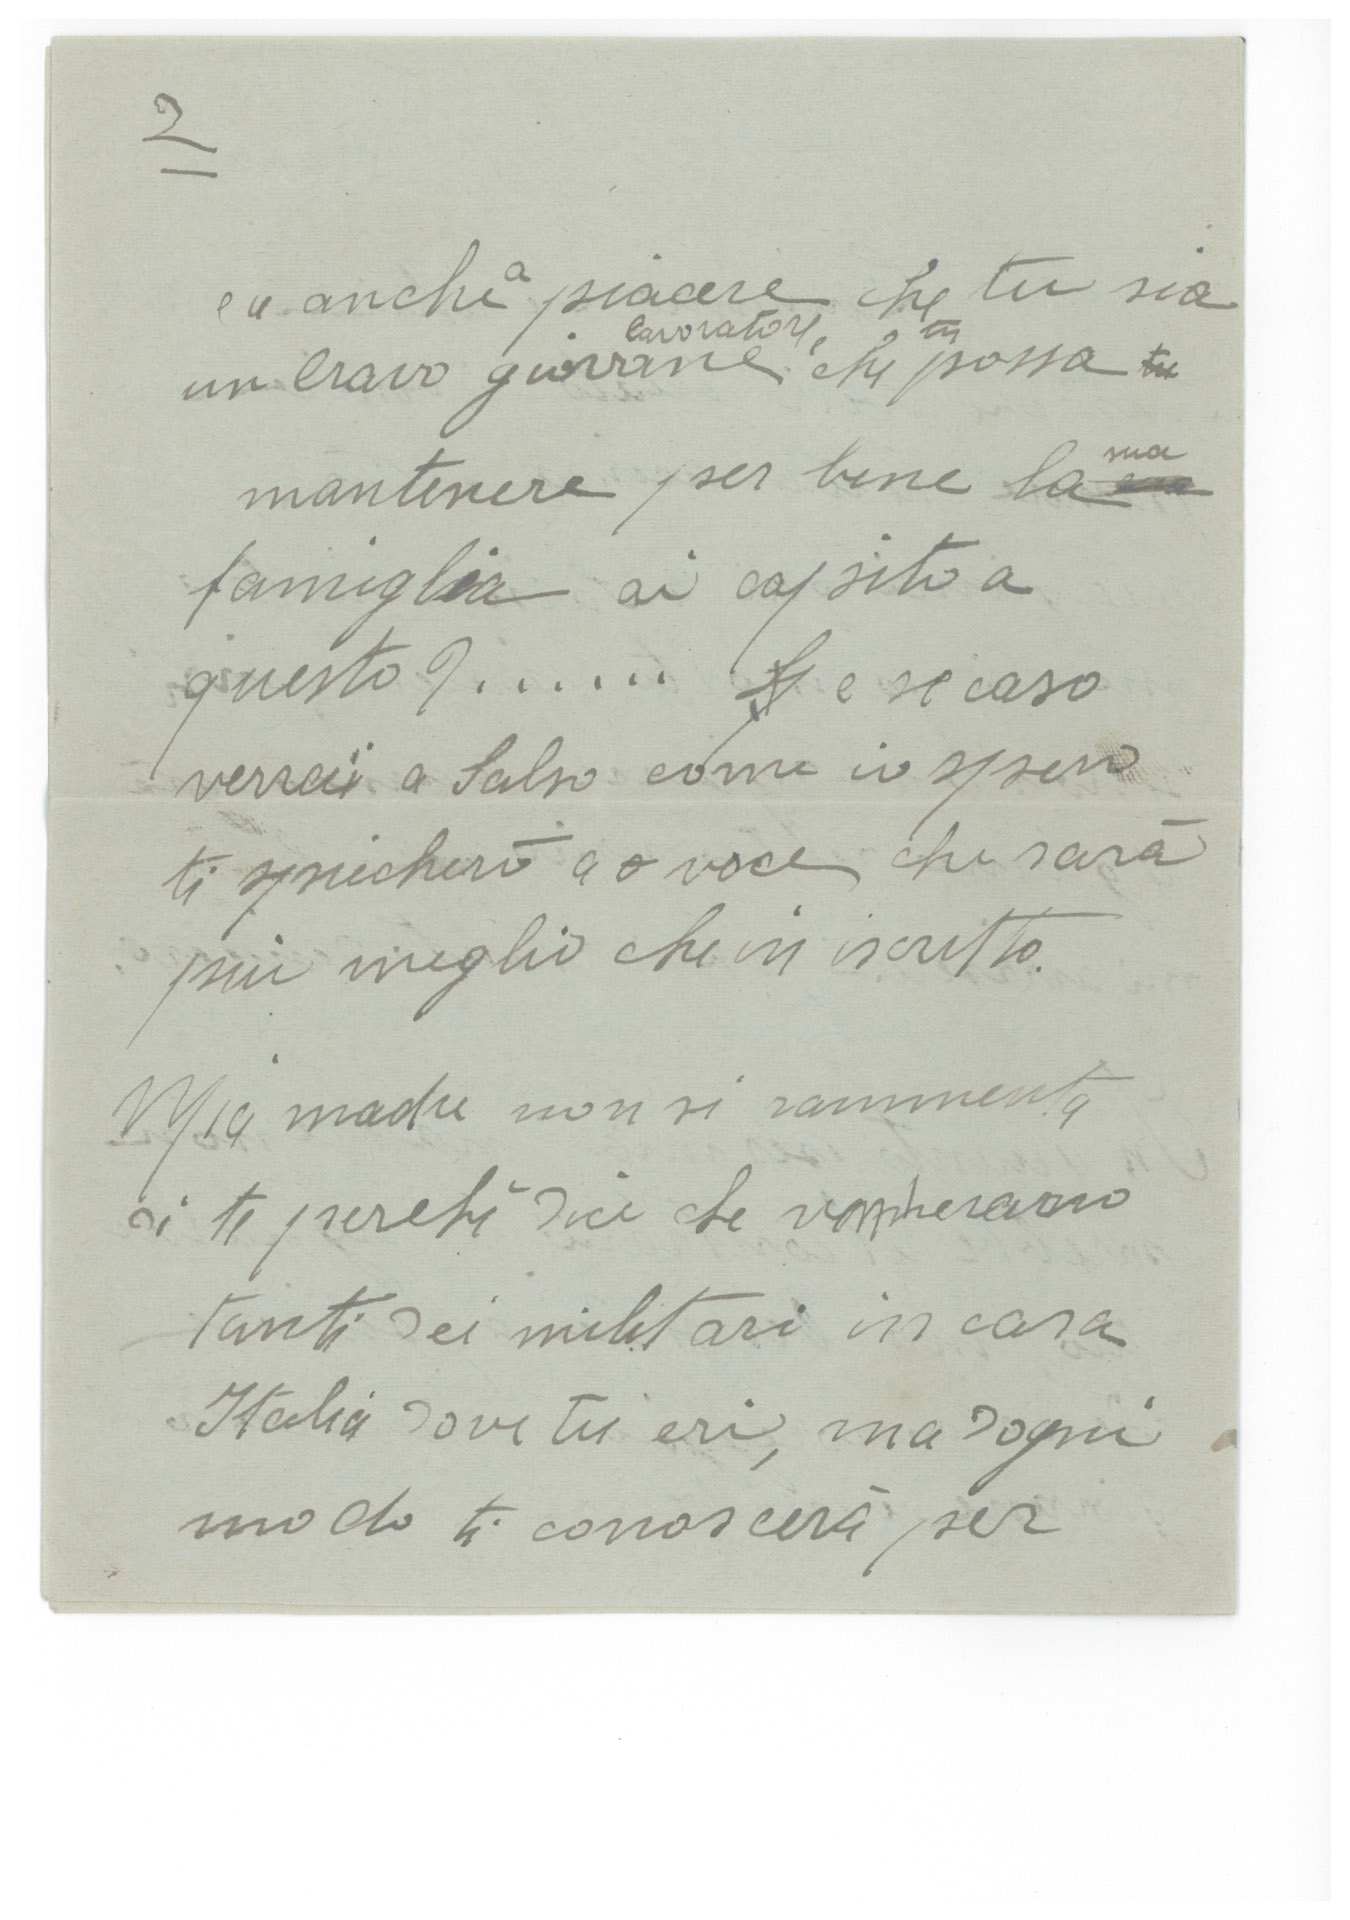 2
e a anche a piacere che tu sia
un bravo giovane lavoratore, che tu possa tu
mantenere per bene la sua
famiglia ai capito a
questo?....... e se caso
verrai a Salso come io spero
ti spiecherò a voce che sarà
piu meglio che in iscritto.
Mia madre non si rammenta
di te perchè dice che
tanti dei militari in casa
Italia dove tu eri, ma dogni
modo ti conoscerà per